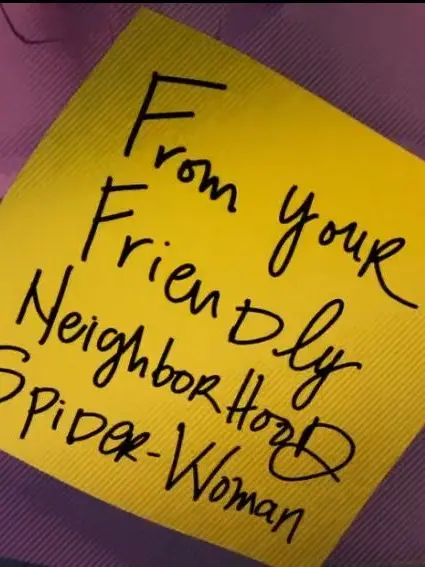 From your
Friendly
Neighborhood
Spider-Woman